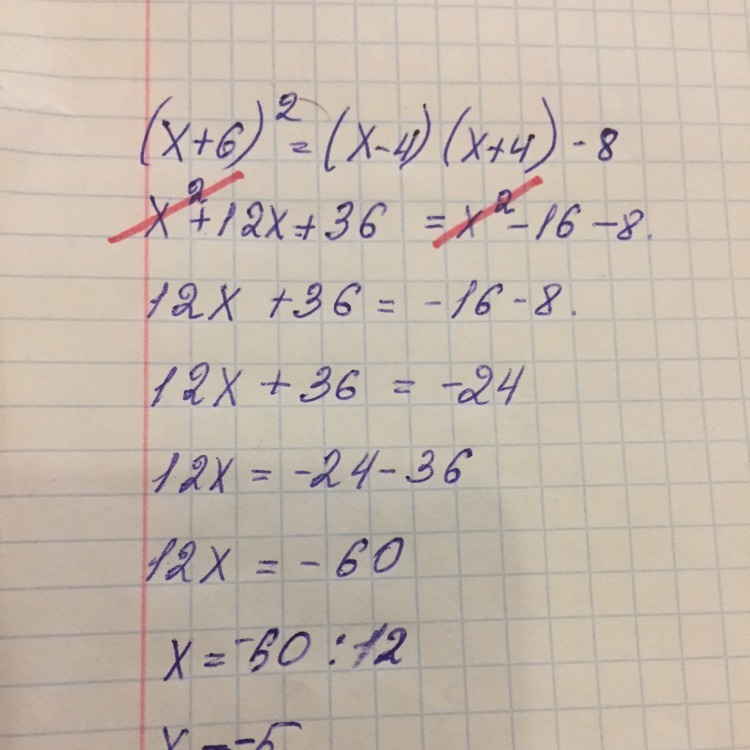 (x+6)² = (x-4)(x+4) - 8
x² + 12x + 36 = x² - 16 - 8.
12x + 36 = -16 - 8.
12x + 36 = -24
12x = -24 - 36
12x = -60
x = -60 : 12
x = -5